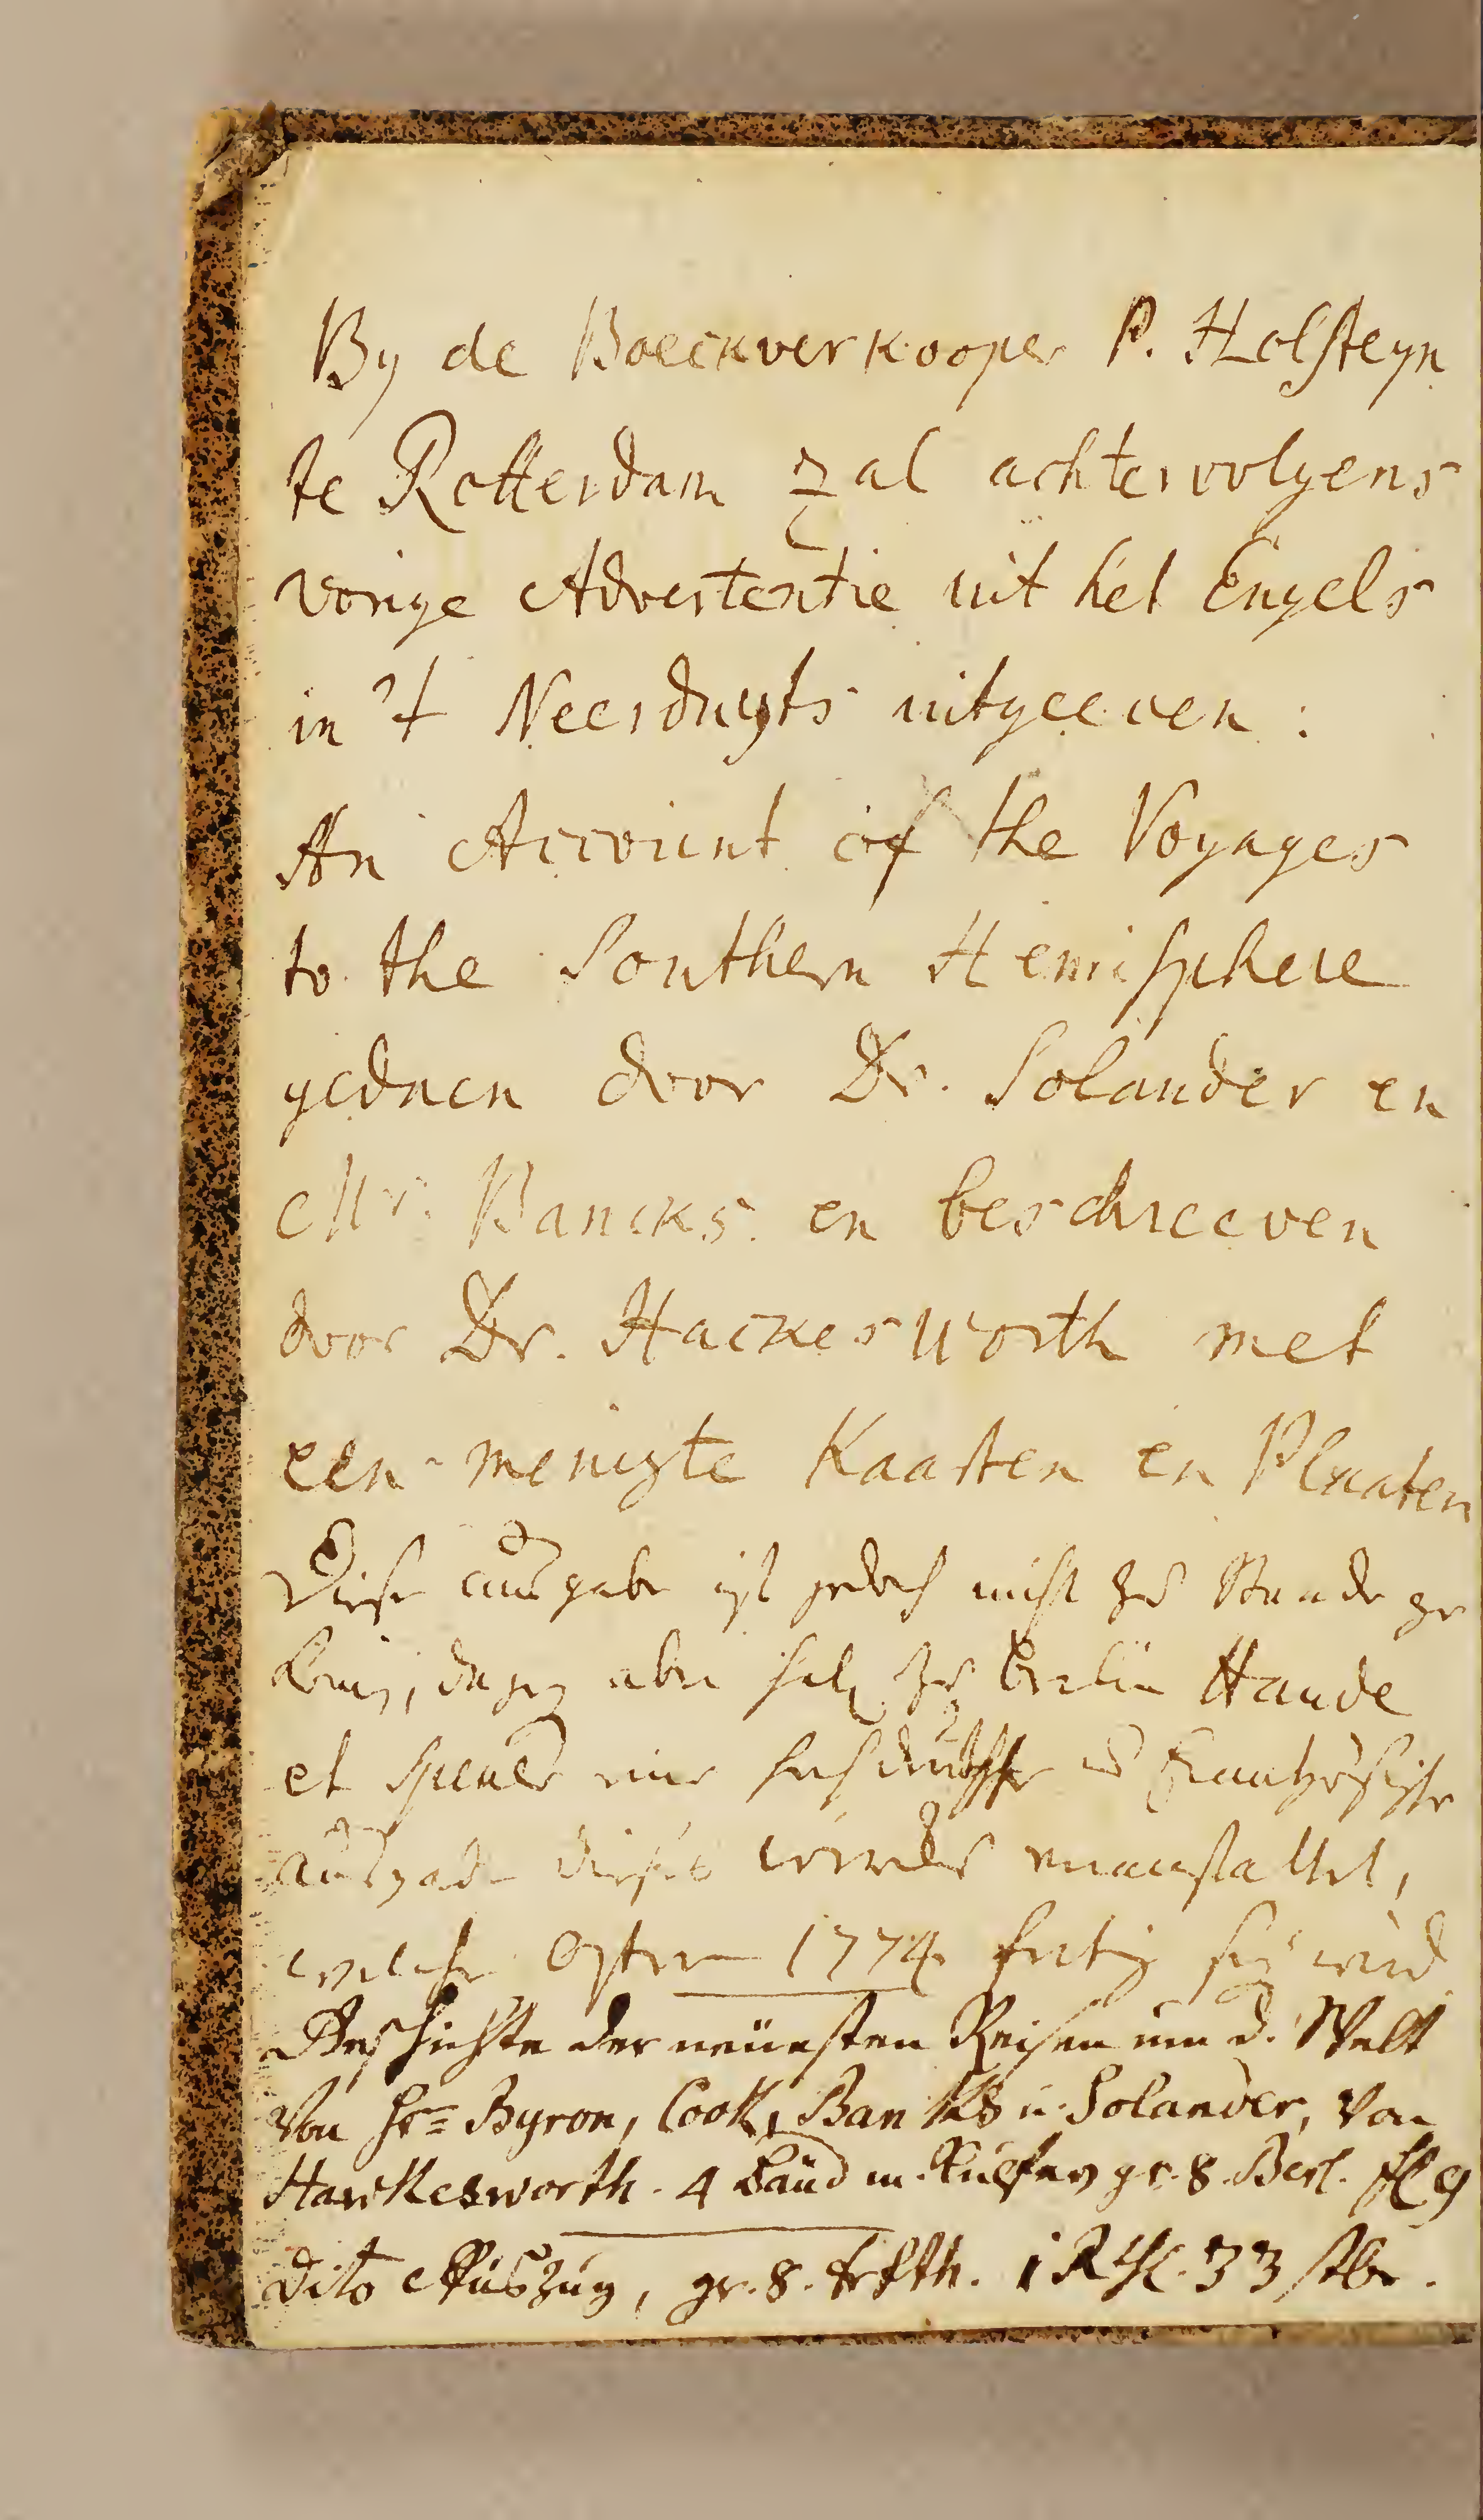 By de Boeckverkooper P. Holsteyn
te Rotterdam zal achtervolgens
vorige Advertentie uit het Engels
in 't Neerduyts uitgeeven :
An Account of the Voyages
to the Southern Hemisphere
gedaen door Dr. Solander en
Mr. Bancks. en beschreeven
door Dr. Hackesworth met
een menigte Kaarten en Plaaten
Diese ausgabe ist jedoch nicht zu Stande ge
aber zu Berlin Haude
et Spener eine hochdeutsche u Frantzösische
ausgabe dieses wercks veranstaltet,
welche Ostern 1774 fertig seyn wird
Geschichte der neüesten Reisen um d. Welt
von Hrn Byron, Cook, Banks u. Solander, von
Hawkesworth. 4 Bänd m. Kupfern gr. 8. Berl. 9
Dito Auszug, gr. 8. Frkfth. 1 R 33 stbr.